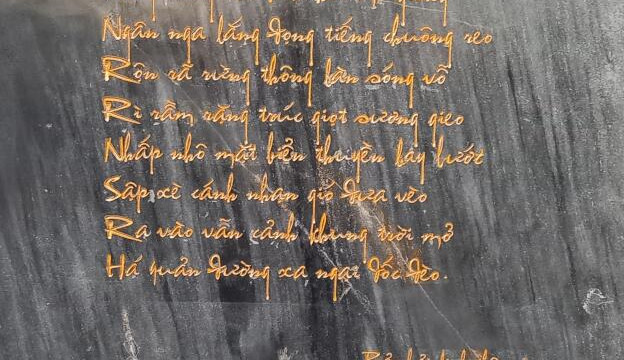 Ngân nga lắng đọng tiếng chuông reo
Rộn rã rừng thông làn sóng vỗ
Rì rầm rặng trúc giọt sương gieo
Nhấp nhô mặt biển thuyền bay lướt
Sập xè cánh nhạn gió đưa vèo
Ra vào vẫn cảnh khung trời mở
Há quản đường xa ngại dốc đèo.